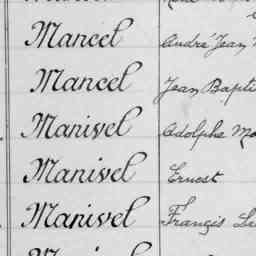 Mancel André Jean
Mancel Jean Bapti
Manivel Adolphe
Manivel Ernest
Manivel Francis